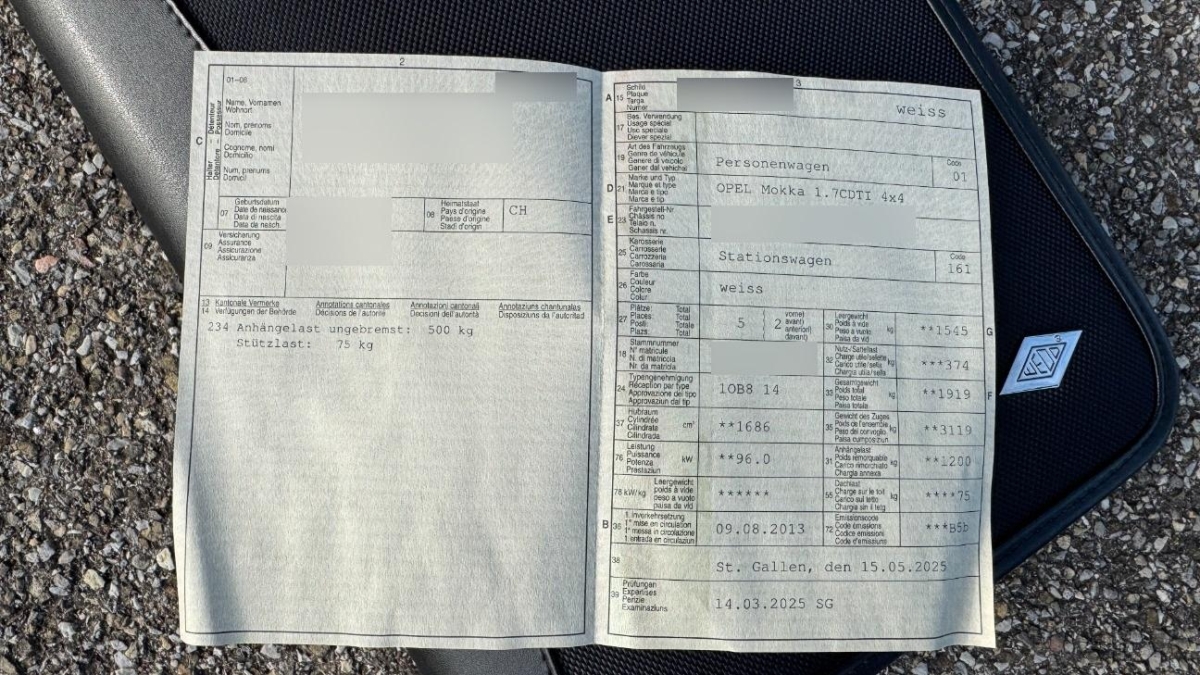 2
01-06
Name, Vornamen
Wohnort
Nom, prénoms
Domicile
Cognome, nomi
Domicilio
Num, prenums
Domicil
C
Halter
Détenteur
Detentore
Possessur
07
Geburtsdatum
Date de naissance
Data di nascita
Data da nasch.
08
Heimatstaat
Pays d'origine
Paese d'origine
Stadi d'origin
CH
09
Versicherung
Assurance
Assicurazione
Assicuranza
13 Kantonale Vermerke Annotations cantonales Annotazioni cantonali Annotaziuns chantunales
14 Verfügungen der Behörde Décisions de l'autorité Decisioni dell'autorità Disposiziuns da l'autoritad
234 Anhängelast ungebremst: 500 kg
Stützlast: 75 kg
3
A 15
Schild
Plaque
Targa
Numer
weiss
17
Bes. Verwendung
Usage spécial
Uso speciale
Diever spezial
19
Art des Fahrzeugs
Genre de véhicule
Genere di veicolo
Gener dal vehichel
Personenwagen
Code
01
D 21
Marke und Typ
Marque et type
Marca e tipo
Marca e tip
OPEL Mokka 1.7CDTI 4x4
E 23
Fahrgestell-Nr.
Châssis no
Telaio n.
Schassis nr.
25
Karosserie
Carrosserie
Carrozzeria
Carossaria
Stationswagen
Code
161
26
Farbe
Couleur
Colore
Colur
weiss
27
Plätze: Total
Places: Total
Posti: Totale
Plazs: Total
5 ( 2 vorne)
avant)
anteriori)
davant)
30
Leergewicht
Poids à vide
Peso a vuoto
Paisa da vid
kg
**1545
G
18
Stammnummer
N° matricule
N. di matricola
Nr. da matricla
32
Nutz-/Sattellast
Charge utile/sellette
Carico utile/sella
Chargia utila/sella
kg
***374
24
Typengenehmigung
Réception par type
Approvazione del tipo
Approvaziun dal tip
1OB8 14
33
Gesamtgewicht
Poids total
Peso totale
Paisa totala
kg
**1919
F
37
Hubraum
Cylindrée
Cilindrata
Cilindrada
cm³
**1686
35
Gewicht des Zuges
Poids de l'ensemble
Peso del convoglio
Paisa cumposiziun
kg
**3119
76
Leistung
Puissance
Potenza
Prestaziun
kW
**96.0
31
Anhängelast
Poids remorquable
Carico rimorchiato
Chargia annexa
kg
**1200
78 kW/kg
Leergewicht
poids à vide
peso a vuoto
paisa da vid
******
55
Dachlast
Charge sur le toit
Carico sul tetto
Chargia sin il tetg
kg
****75
B 36
1. Inverkehrsetzung
1re mise en circulation
1a messa in circolazione
1. entrada en circulaziun
09.08.2013
72
Emissionscode
Code émissions
Codice emissioni
Code d'emissiuns
***B5b
38
St. Gallen, den 15.05.2025
39
Prüfungen
Expertises
Perizie
Examinaziuns
14.03.2025 SG